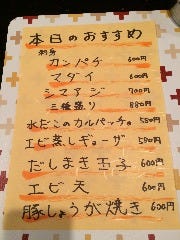 本日のおすすめ
刺身
カンパチ 600円
マダイ 600円
シマアジ 700円
三種盛り 880円
水だこのカルパッチョ 580円
エビ蒸しギョーザ 590円
だしまき玉子 600円
エビ天 600円
豚しょうが焼き 600円